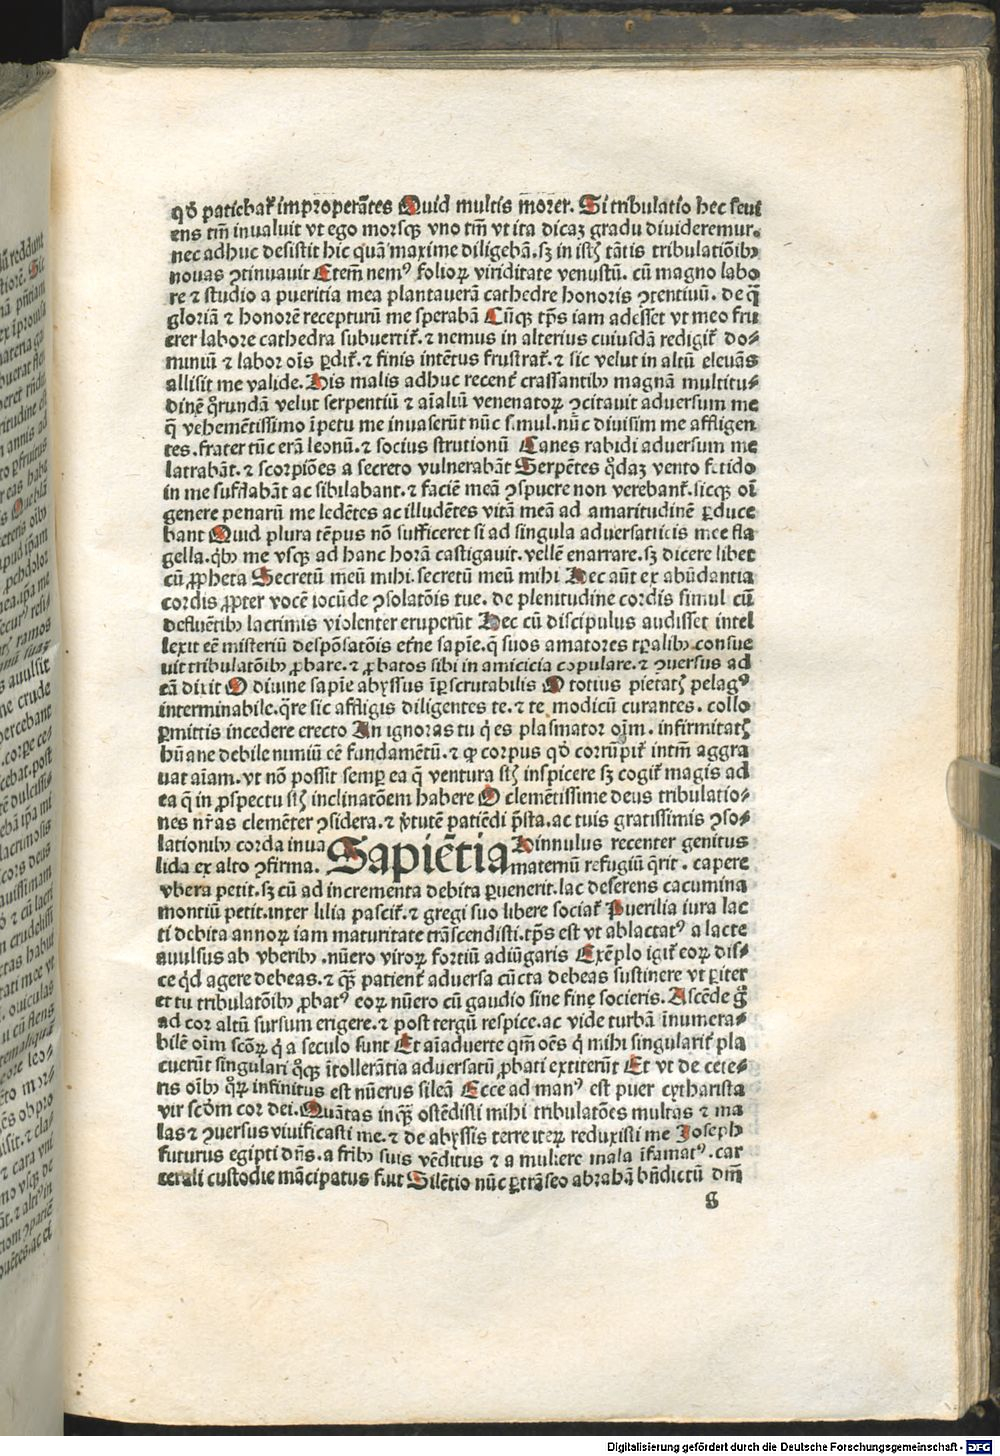 qđ patiebaʳ improperātes Quid multis morer. Si tribulatio hec seui
ens tm̄ inualuit vt ego morsqꝫ vno tm̄ vt ita dicaꝫ gradu diuideremur.
nec adhuc desistit hic quā maxime diligebā. sꝫ in istꝭ tātis tribulatiōibꝰ
nouas ꝯtinuauit Etem̄ nemꝰ folioꝝ viriditate venustū. cū magno labo
re ⁊ studio a pueritia mea plantauerā cathedre honoris ꝯtentiuū. de q̄
gloriā ⁊ honorē recepturū me sperabā Cūqꝫ tp̄s iam adesset vt meo fru
erer labore cathedra subuertiʳ. ⁊ nemus in alterius cuiusdā redigiʳ do-
miniū ⁊ labor oīs ꝑdiʳ. ⁊ finis intētus frustraʳ. ⁊ sic velut in altū eleuās
allisit me valide. His malis adhuc recenʳ crassantibꝰ magnā multitu-
dinē q̊rundā velut serpentiū ⁊ aīaliū venenatoꝝ ꝯcitauit aduersum me
q̄ vehemētissimo īpetu me inuaserūt nūc simul. nūc diuisim me affligen
tes. frater tūc erā leonū. ⁊ socius strutionū Canes rabidi aduersum me
latrabāt. ⁊ scorpiōes a secreto vulnerabāt Serpētes q̊daꝫ vento fetido
in me sufflabāt ac sibilabant. ⁊ faciē meā ꝯspuere non verebanʳ. sicqꝫ oī
genere penarū me ledētes ac illudētes vitā meā ad amaritudinē ꝑduce
bant Quid plura tēpus nō sufficeret si ad singula aduersitatis mee fla
gella. q̇bꝰ me vsqꝫ ad hanc horā castigauit. vellē enarrare. sꝫ dicere libet
cū ꝓpheta Secretū meū mihi. secretū meū mihi Hec aūt ex abūdantia
cordis ꝓpter vocē iocūde ꝯsolatōis tue. de plenitudine cordis simul cū
defluētibꝰ lacrimis violenter eruperūt Hec cū discipulus audisset intel
lexit eē misteriū despōsatōis etʼne sapīe. q̇ suos amatores tꝑalibꝰ consue
uit tribulatōibꝰ ꝓbare. ⁊ ꝓbatos sibi in amicicia copulare. ⁊ ꝯuersus ad
eā dixit O diuine sapīe abyssus īꝑscrutabilis O totius pietatꝭ pelagꝰ
interminabile. q̄re sic affligis diligentes te. ⁊ te modicū curantes. collo
ꝑmittis incedere erecto An ignoras tu q̇ es plasmator oīm. infirmitatꝭ
hūane debile nimiū eē fundamētū. ⁊ ꝙ corpus qđ corrūpiʳ intm̄ aggra
uat aīam. vt nō possit semꝑ ea q̄ ventura stꝭ inspicere sꝫ cogiʳ magis ad
ea q̄ in ꝓspectu stꝭ inclinatōem habere O clemētissime deus tribulatio-
nes nr̄as clemēter ꝯsidera. ⁊ v̇tutē patiēdi p̄sta. ac tuis gratissimis ꝯso-
lationibꝰ corda inua
lida ex alto ꝯfirma. Sapiētia Hinnulus recenter genitus
maternū refugiū q̄rit. capere
vbera petit. sꝫ cū ad incrementa debita ꝑuenerit. lac deserens cacumina
montiū petit. inter lilia pasciʳ. ⁊ gregi suo libere sociaʳ Puerilia iura lac
ti debita annoꝝ iam maturitate trāscendisti. tp̄s est vt ablactatꝰ a lacte
auulsus ab vberibꝰ. nūero viroꝝ fortiū adiūgaris Exēplo igiʳ eoꝝ dis-
ce q̇d agere debeas. ⁊ q̄ꝫ patienʳ aduersa cūcta debeas sustinere vt ꝑiter
et tu tribulatōibꝰ ꝓbatꝰ eoꝝ nūero cū gaudio sine fine socieris. Ascēde g̊
ad cor altū sursum erigere. ⁊ post tergū respice. ac vide turbā īnumera-
bilē oīm scōꝝ q̇ a seculo sunt Et aīaduerte qm̄ oēs q̇ mihi singulariʳ pla
cuerūt singulari q̊qꝫ ītollerātia aduersatū ꝓbati extiterūt Et vt de cete-
ris oībꝰ q̊ꝝ infinitus est nūerus sileā Ecce ad manꝰ est puer cytharista
vir scđm cor dei. Quātas inq̄ꝫ ostēdisti mihi tribulatōes multas ⁊ ma
las ⁊ ꝯuersus viuificasti me. ⁊ de abyssis terre iteꝝ reduxisti me Joseph
futurus egipti dn̄s. a fribꝰ suis vēditus ⁊ a muliere mala īfamatꝰ. car
cerali custodie mācipatus fuit Silētio nūc ꝑtrāseo abrahā bn̄dictū dm̄
g
Digitalisierung gefördert durch die Deutsche Forschungsgemeinschaft - DFG